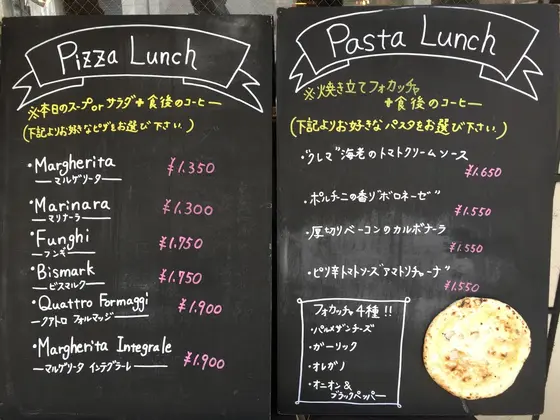 Pizza Lunch
※本日のスープorサラダ+食後のコーヒー
(下記よりお好きなピザをお選び下さい。)
・Margherita ¥1.350
マルゲリータ
・Marinara ¥1.300
マリナーラ
・Funghi ¥1.750
フンギ
・Bismark ¥1.750
ビスマルク
・Quattro Formaggi ¥1.900
クアトロ フォルマッジ
・Margherita Integrale ¥1.900
マルゲリータ インテグラーレ
Pasta Lunch
※焼き立てフォカッチャ
+食後のコーヒー
(下記よりお好きなパスタをお選び下さい。)
・"クレマ"海老のトマトクリームソース
¥1.650
・ポルチーニの香り"ボロネーゼ"
¥1.550
・厚切りベーコンのカルボナーラ
¥1.550
・ピリ辛トマトソース"アマトリチャーナ"
¥1.550
フォカッチャ4種!!
・パルメザンチーズ
・ガーリック
・オレガノ
・オニオン&
ブラックペッパー